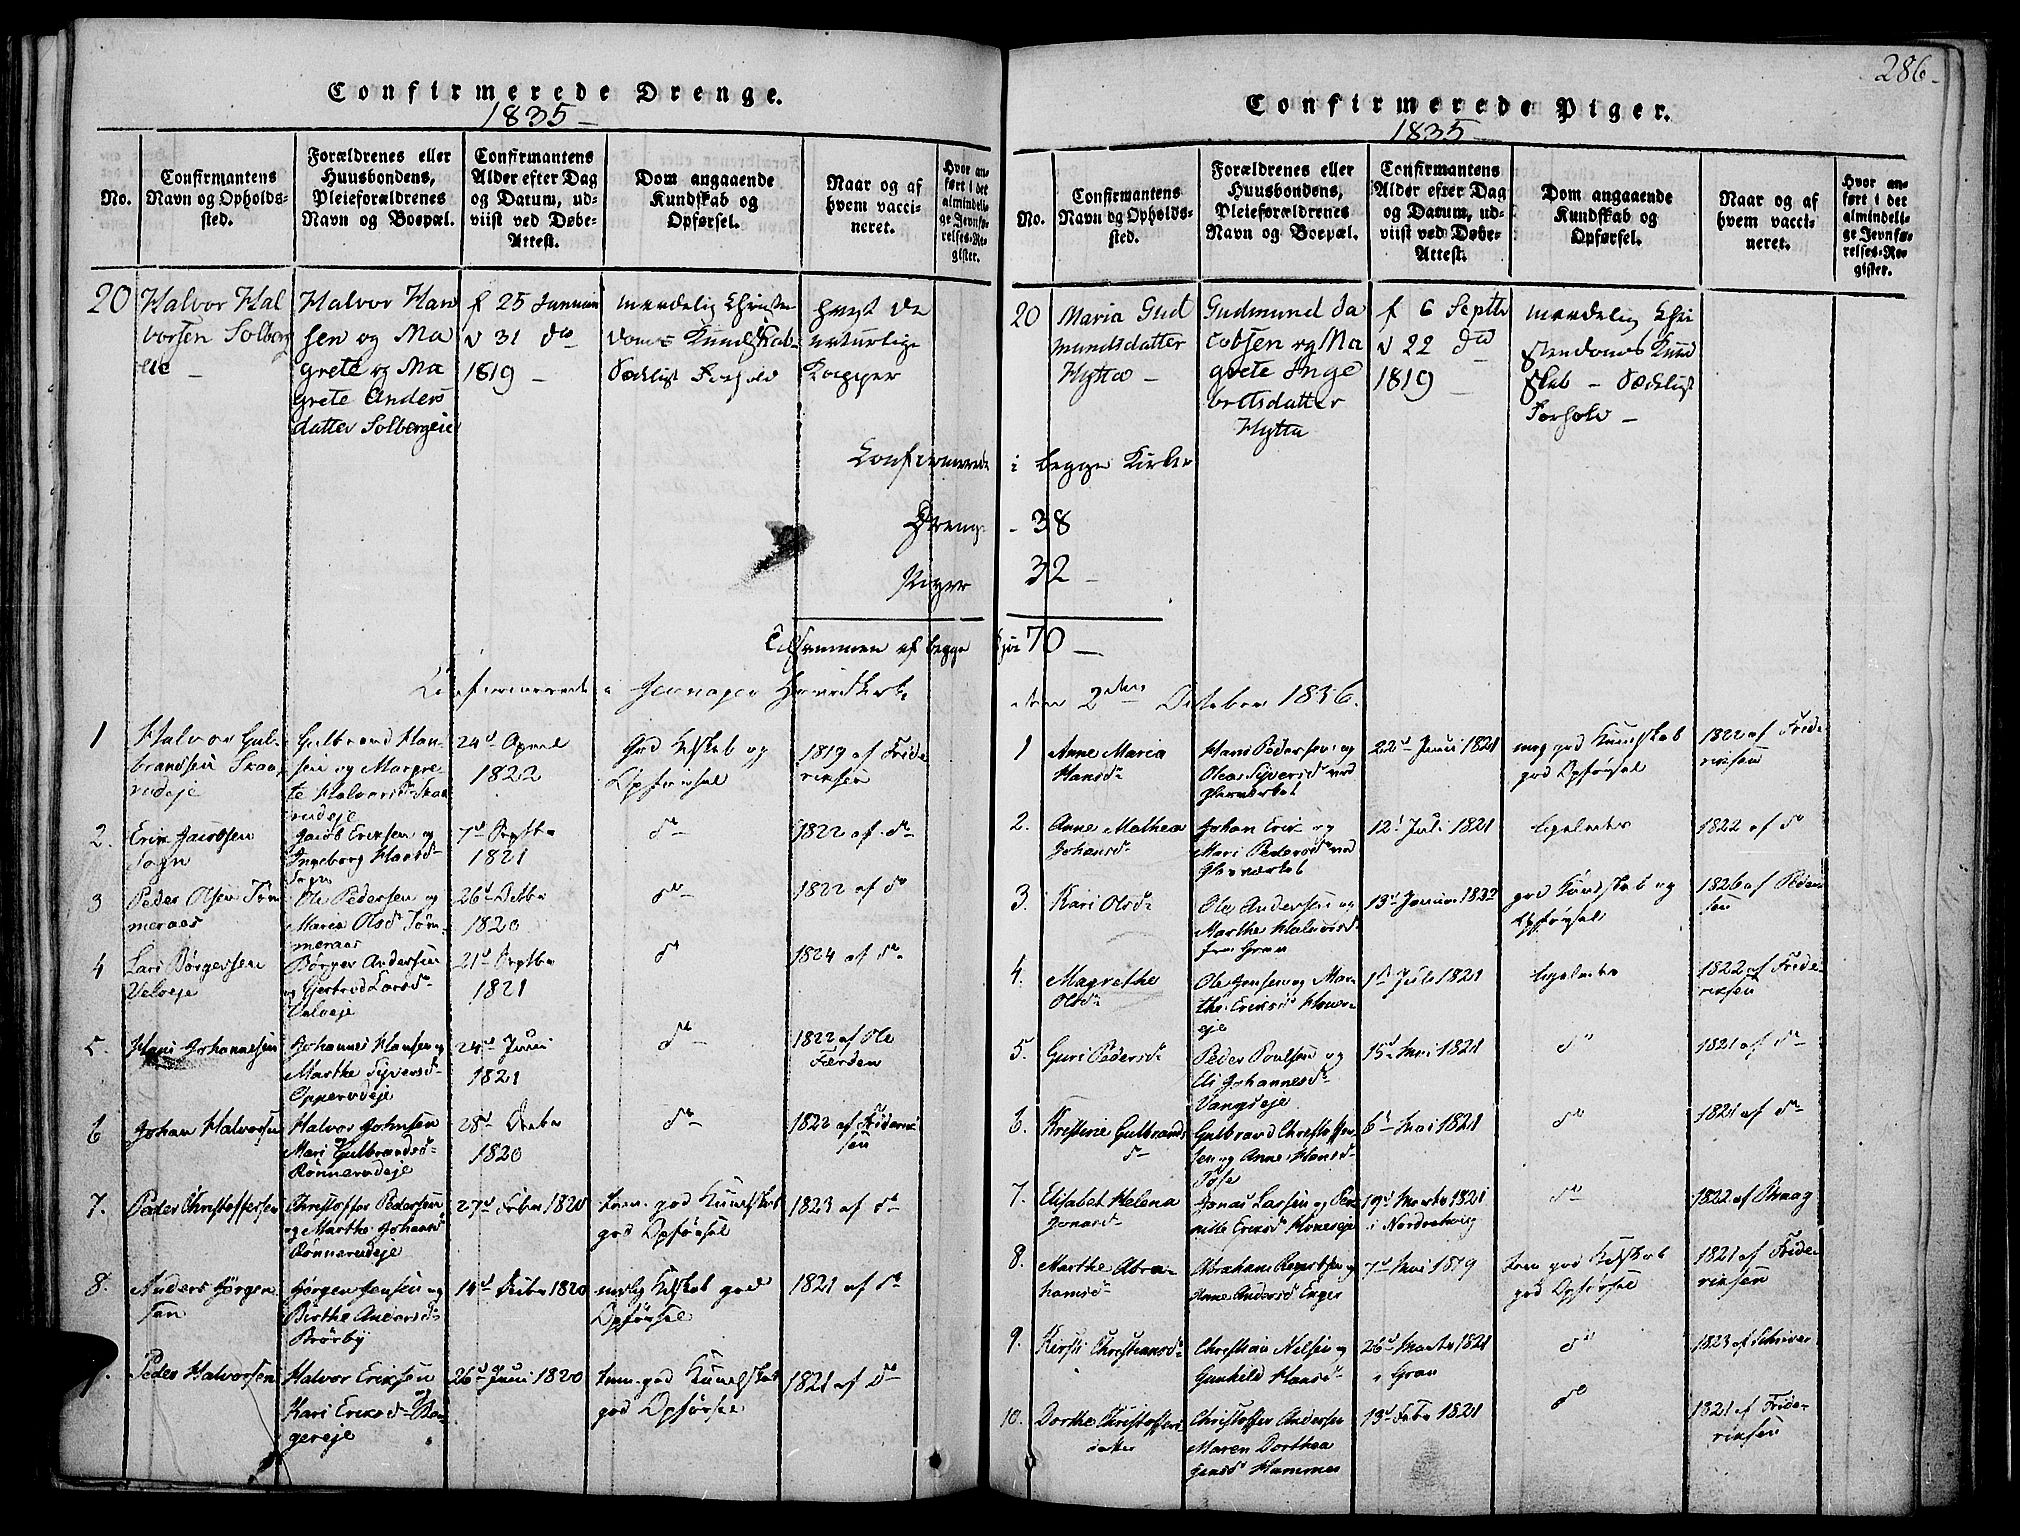 286.
Confirmerede Drenge.
1835
No.
Confirmantens
Navn og Opholds-
sted.
Forældrenes eller
Huusbondens,
Pleieforældrenes
Navn og Boepæl.
Confirmantens
Alder efter Dag
og Datum, ud-
viist ved Døbe-
Attest.
Dom angaaende
Kundskab og
Opførsel.
Naar og af
hvem vacci-
neret.
Hvor an-
ført i det
almindeli-
ge Jevnfø-
relses-Re-
gister.
20
Halvor Hal
vorsen Solberg
eie
Halvor Han
sen og Ma
grete og Ma
grete Anders
datter Solbergeie
f 25 Januar
d 31 do
1819
maadelig Christen
doms Kundskab
Sædeligt Forhold
havt de
naturlige
Kopper
Confirmerede
Drenge
Piger
Tilsammen af begge
Confirmerede i Jevnager Hovedkirke
1
Halvor Gul-
brandsen Skaa-
rudeje
Gulbrand Han-
sen og Margre-
te Halvorsd. Skaa-
rudeje
24d April
1822
God Kdskab og
Opførsel
1819 af Fride
riksen
2.
Erik Jacobsen
Sogn
Jacob Eriksen og
Ingeborg Hansd
Sogn
7d Septbr
1821
do
1822 af do
3
Peder Olsen Tøm
meraas
Ole Pedersen og
Maria Olsd Tøm-
meraas
26d Octbr
1820
do
1822 af do
4
Lars Børgersen
Velveje
Børger Andersen
og Gjertrud Larsd
Velveje
21d Septbr
1821
do
1824 af do
5.
Hans Johannesen
Johannes Hansen og
Marthe Syversd
Opperudeje
24d Juni
1821
do
1822 af Ole
Færden
6
Johan Halvorsen
Halvor Johnsen
og
Mari Gulbrandsd
Rønnerudeje
28d Decbr
1820
do
1822 af Frideric
sen
7.
Peder Christoffersen
Christoffer Pedersen
og Marthe Johansd
Rønnerudeje
27d Febr 1820
tem. god Kundskab
god Opførsel
1823 af do
8.
Anders Jørgen
sen
Jørgen Jensen og
Birthe Andersd
Brørby
14d Febr 1820
Kdskab god
Opførsel
1821 af do
9.
Peder Halvorsen
Halvor Eriksen
og
Kari Eriksd
gereje
26d Juni 1820
tem. god Kundskab
god Opførsel
1821 af do
Confirmerede Piger.
1835
No.
Confirmantens
Navn og Opholds-
sted.
Forældrenes eller
Huusbondens,
Pleieforældrenes
Navn og Boepæl.
Confirmantens
Alder efter Dag
og Datum, ud-
viist ved Døbe-
Attest.
Dom angaaende
Kundskab og
Opførsel.
Naar og af
hvem vacci-
neret.
Hvor an-
ført i det
almindeli-
ge Jevnfø-
relses-Re-
gister.
20
Maria Gud
mundsdatter
Hytta
Gudmund Ja
cobsen og Ma
grete Inge
bretsdatter
Hytta
f 6 Septbr
d 22 do
1819
maadelig Chri
stendoms Kund
skab - Sædeligt
Forhold
i begge Kirker
- 38
32
70
den 2den October 1836.
1
Anne Maria
Hansd
Hans Pedersen og
Olea Syversd ved
Glasværket
22d Juni 1821
meg god Kundskab
god Opførsel
1822 af Fride
riksen
2.
Anne Mathea
Johansd
Johan Erik og
Mari Pedersd ved
Glasværket
12d Juli 1821
ligeledes
1822 af do
3.
Kari Olsd
Ole Andersen og
Marthe Halvorsd
fra Gran
13d Januar 1822
god Kundskab og
Opførsel
1826 af Peder
sen
4.
Magrethe
Olsd
Ole Jensen og Mar-
the Eriksd
eje
1d Juli 1821
ligeledes
1822 af Fride-
riksen
5.
Guri Pedersd
Peder Poulsen og
Eli Johannesd
Vangseje
15d Mai 1821
do
1821 af do
6.
Kristine Gulbrands
d
Gulbrand Christoffer
sen og Anne Hansd
6d Mai 1821
do
1821 af do
7.
Elisabet Helena
Jonasd
Jonas Larsen og Per
nille Eriksd
19d Marts 1821
i Nordrehoug
do
1822 af Braag
8.
Marthe Abra-
hamsd
Abraham og
Anne Andersd Enger
7d Mai 1819
tem god Kdskab
god Opførsel
1821 af Fride
riksen
9.
Kirsti Christiansd
Christian Nilsen og
Gunhild Hansd
26d Marts 1821
i Gran
do
1823 af Schriver
10.
Dorthe Christoffers
datter
Christoffer Andersen
Maren Dorthea
Hammer
13d Febr 1821
do
1821 af Frider
riksen